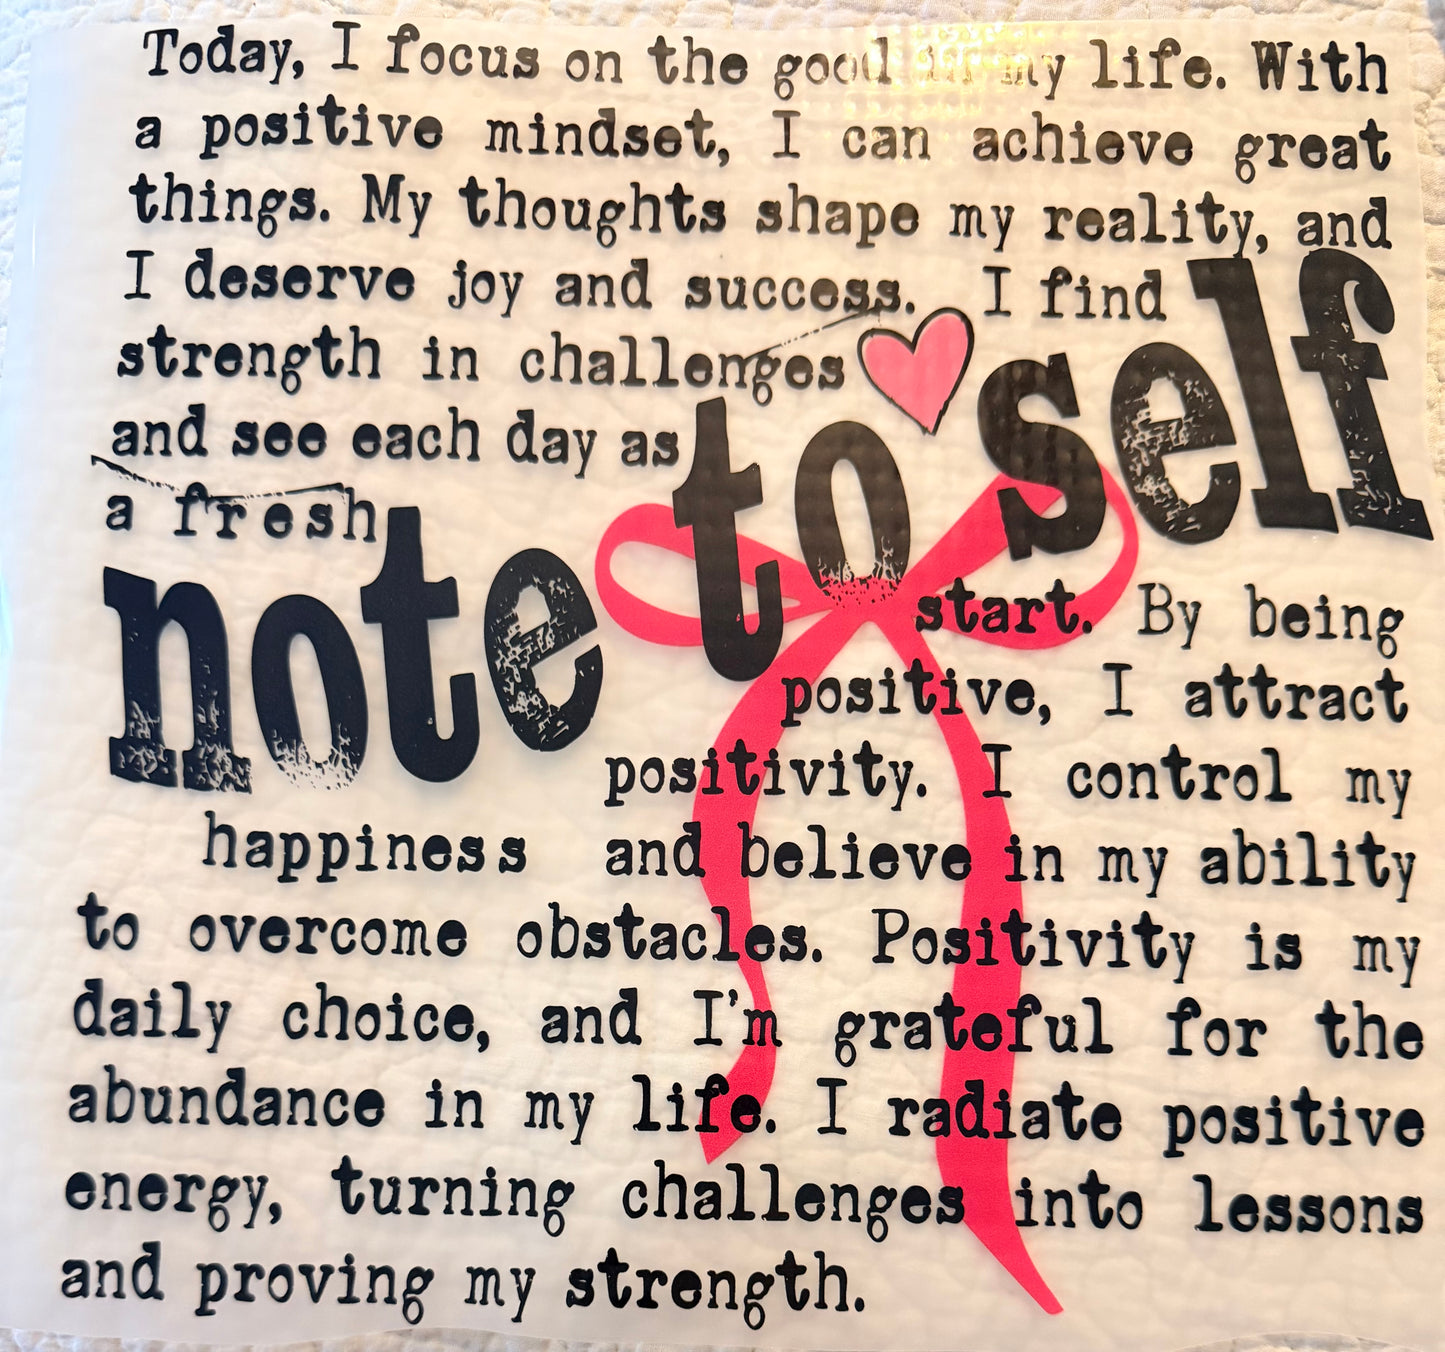 Today, I focus on the good in my life. With
a positive mindset, I can achieve great
things. My thoughts shape my reality, and
I deserve joy and success. I find
strength in challenges
and see each day as
a fresh
note to self
start. By being
positive, I attract
positivity. I control my
happiness and believe in my ability
to overcome obstacles. Positivity is my
daily choice, and I'm grateful for the
abundance in my life. I radiate positive
energy, turning challenges into lessons
and proving my strength.